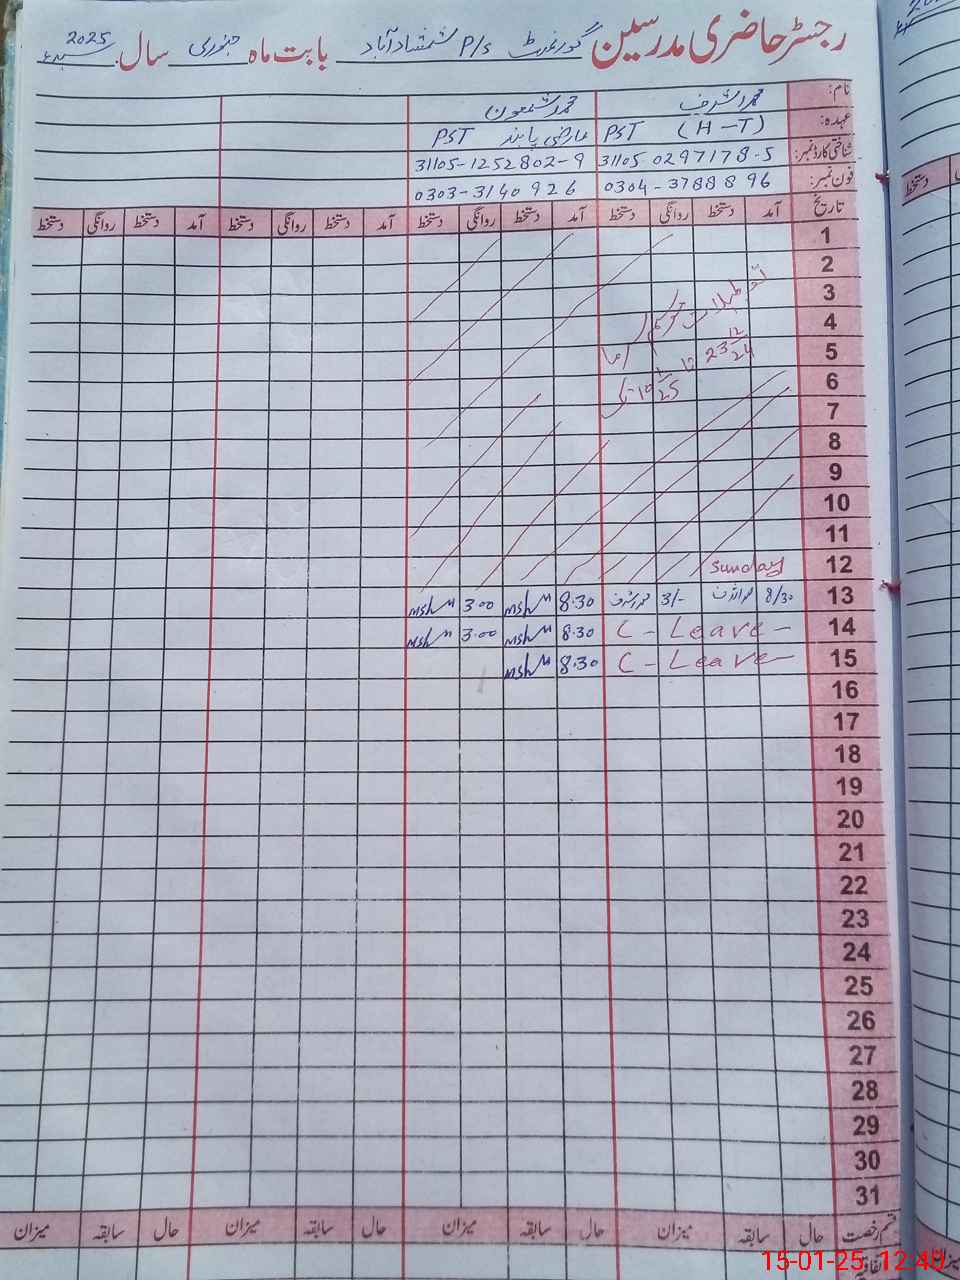 رجسٹر حاضری مدرسین گورنمنٹ P/S شمشادآباد بابت ماہ جنوری سال 2025ء
نام: محمد اشرف محمد شمعون
عہدہ: PST (H-T) عارضی پابند PST
شناختی کارڈ نمبر: 31105 0297178-5 31105-1252802-9
فون نمبر: 0304-3788896 0303-3140926
تاریخ آمد دستخط روانگی دستخط آمد دستخط روانگی دستخط آمد دستخط روانگی دستخط آمد دستخط روانگی دستخط
1
2
3
تعطیلات موسم سرما
4
5
23 12/24 تا 10 1/25 تک
6
7
8
9
10
11
12 Sunday
13 8/30 محمد اشرف 3/- محمد اشرف 8:30 3:00
14 C - Leave - 8:30 3:00
15 C - Leave - 8:30
16
17
18
19
20
21
22
23
24
25
26
27
28
29
30
31
قسم رخصت حال سابقہ میزان حال سابقہ میزان حال سابقہ میزان حال سابقہ میزان
15-01-25, 12:40